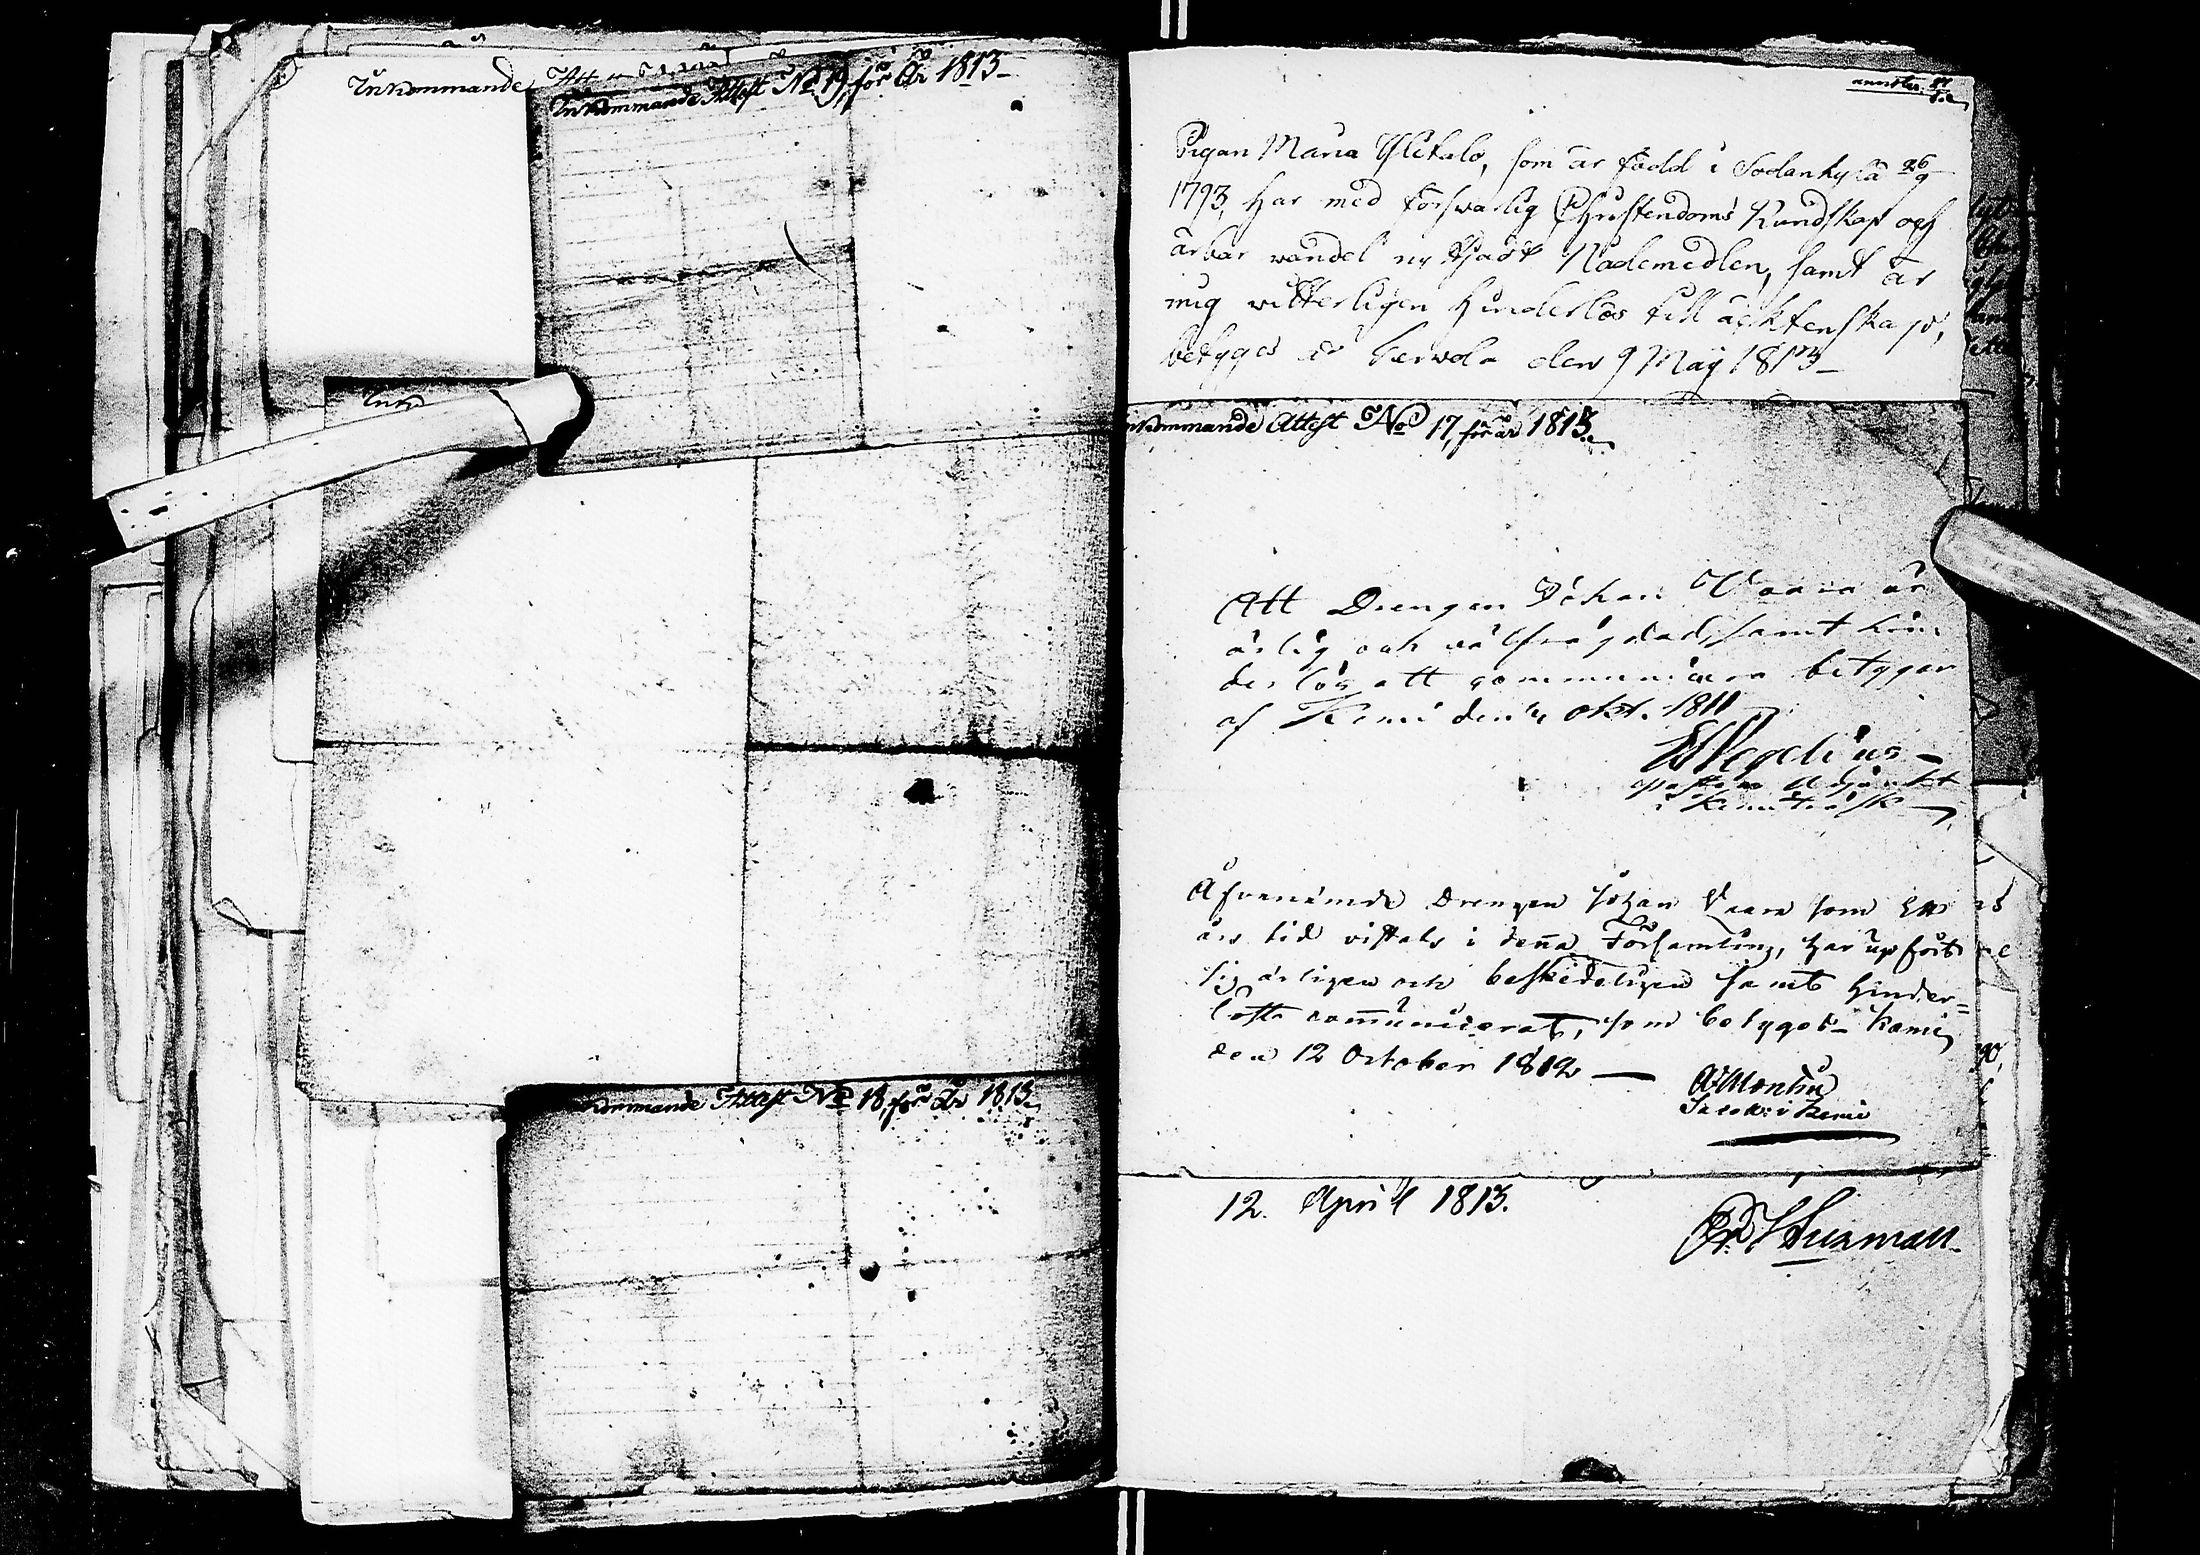 Inkommande
Inkommande Attest No 19, för År 1813
Inkommande Attest No 18, för År 1813.
Pigan Maria Ylitalo, som är född i Sodankylä 26/9
1793, har med försvarlig Christendoms Kundskap och
ärbar vandel nyttjadt Nådemedlen, samt är
mig vitterligen hinderlös till äcktenskap,
betygas af Tervola den 9 Maij 1813
inkommande Attest No 17, för år 1813.
Att Drengen Johan Vaara är
ärlig och välfrägdad, samt hin-
derlös att communicera betygar
af Kemi den 4 Okt. 1811
Wegelius
Pastors Adjunkt
i Kemiträsk
Åfvannämde Drengen Johan Vaara som ett
års tid vistats i denna Församling, har upfört
sig ärligen och beskedeligen samt hinder=
löst communicerat, som betygas Kemi
den 12 October 1812
i Kemi
12. April 1813.